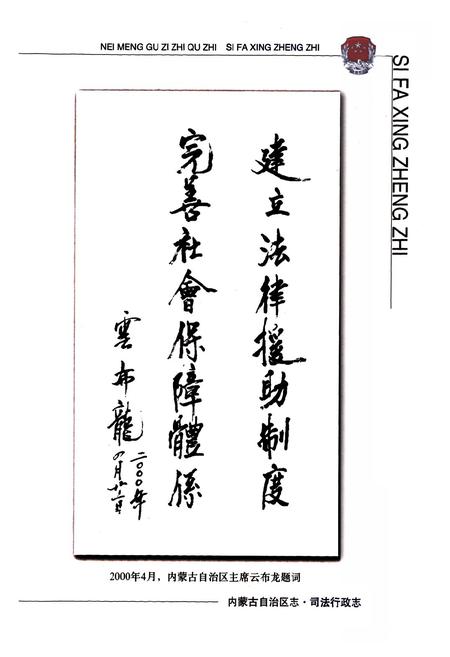 NEI MENG GU ZI ZHI QU ZHI SI FA XING ZHENG ZHI
SI FA XING ZHENG ZHI
建立法律援助制度
完善社會保障體係
雲布龍
二〇〇〇年
四月廿六日
2000年4月，内蒙古自治区主席云布龙题词
内蒙古自治区志·司法行政志